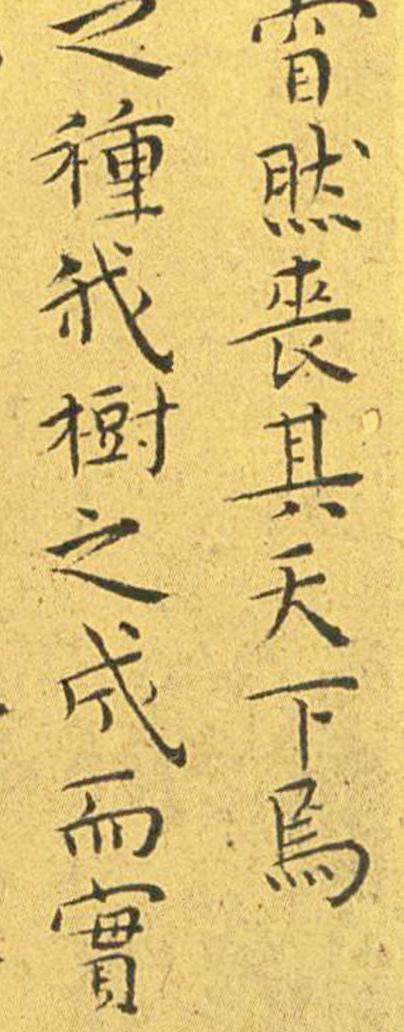 窅然喪其天下焉
之種我樹之成而實